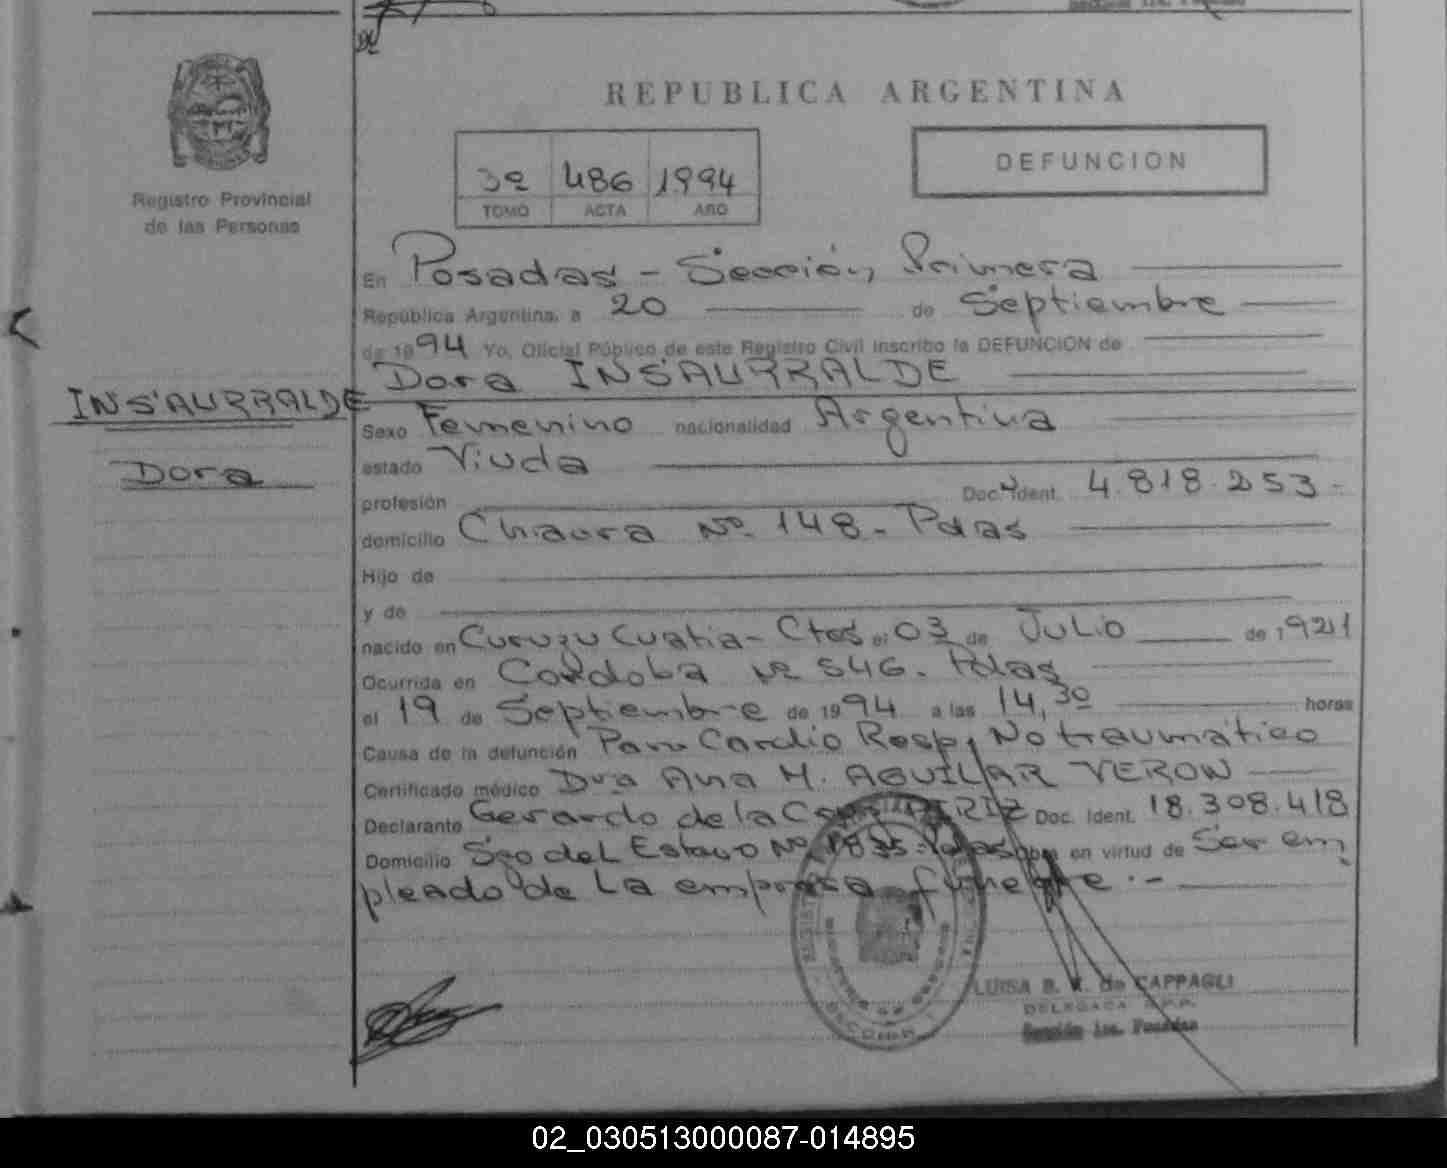 REPUBLICA ARGENTINA
Registro Provincial
de las Personas
3º 486 1994
TOMO ACTA AÑO
DEFUNCION
En Posadas - Sección Primera
República Argentina, a 20 de Septiembre
de 1994 Yo, Oficial Público de este Registro Civil inscribo la DEFUNCION de
Dora INSAURRALDE
INSAURRALDE
Dora
Sexo Femenino nacionalidad Argentina
estado Viuda
profesión Doc. Ident. 4.818.253-
domicilio Nº 148- Pdas
Hijo de
y de
nacido en Curuzu Cuatia- Ctes el 03 de Julio de 1921
Ocurrida en Cordoba Nº 546. Pdas
el 19 de Septiembre de 1994 a las 14,30 horas
Causa de la defunción Paro Cardio Resp. No traumático
Certificado médico Dra Ana M. AGUILAR VERON
Declarante Gerardo de la Cruz Doc. Ident. 18.308.418
Domicilio Sgo del Estero Nº 1835-Pdas en virtud de Ser em
pleado de La empresa funebre.-
LUISA B. de CAPPAGLI
DELEGADA R.P.P.
Sección 1ra. Posadas
02_030513000087-014895